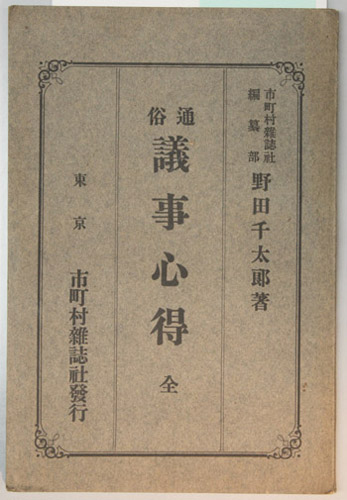 市町村雜誌社
編纂部
野田千太郎著
通俗
議事心得 全
東京
市町村雜誌社發行